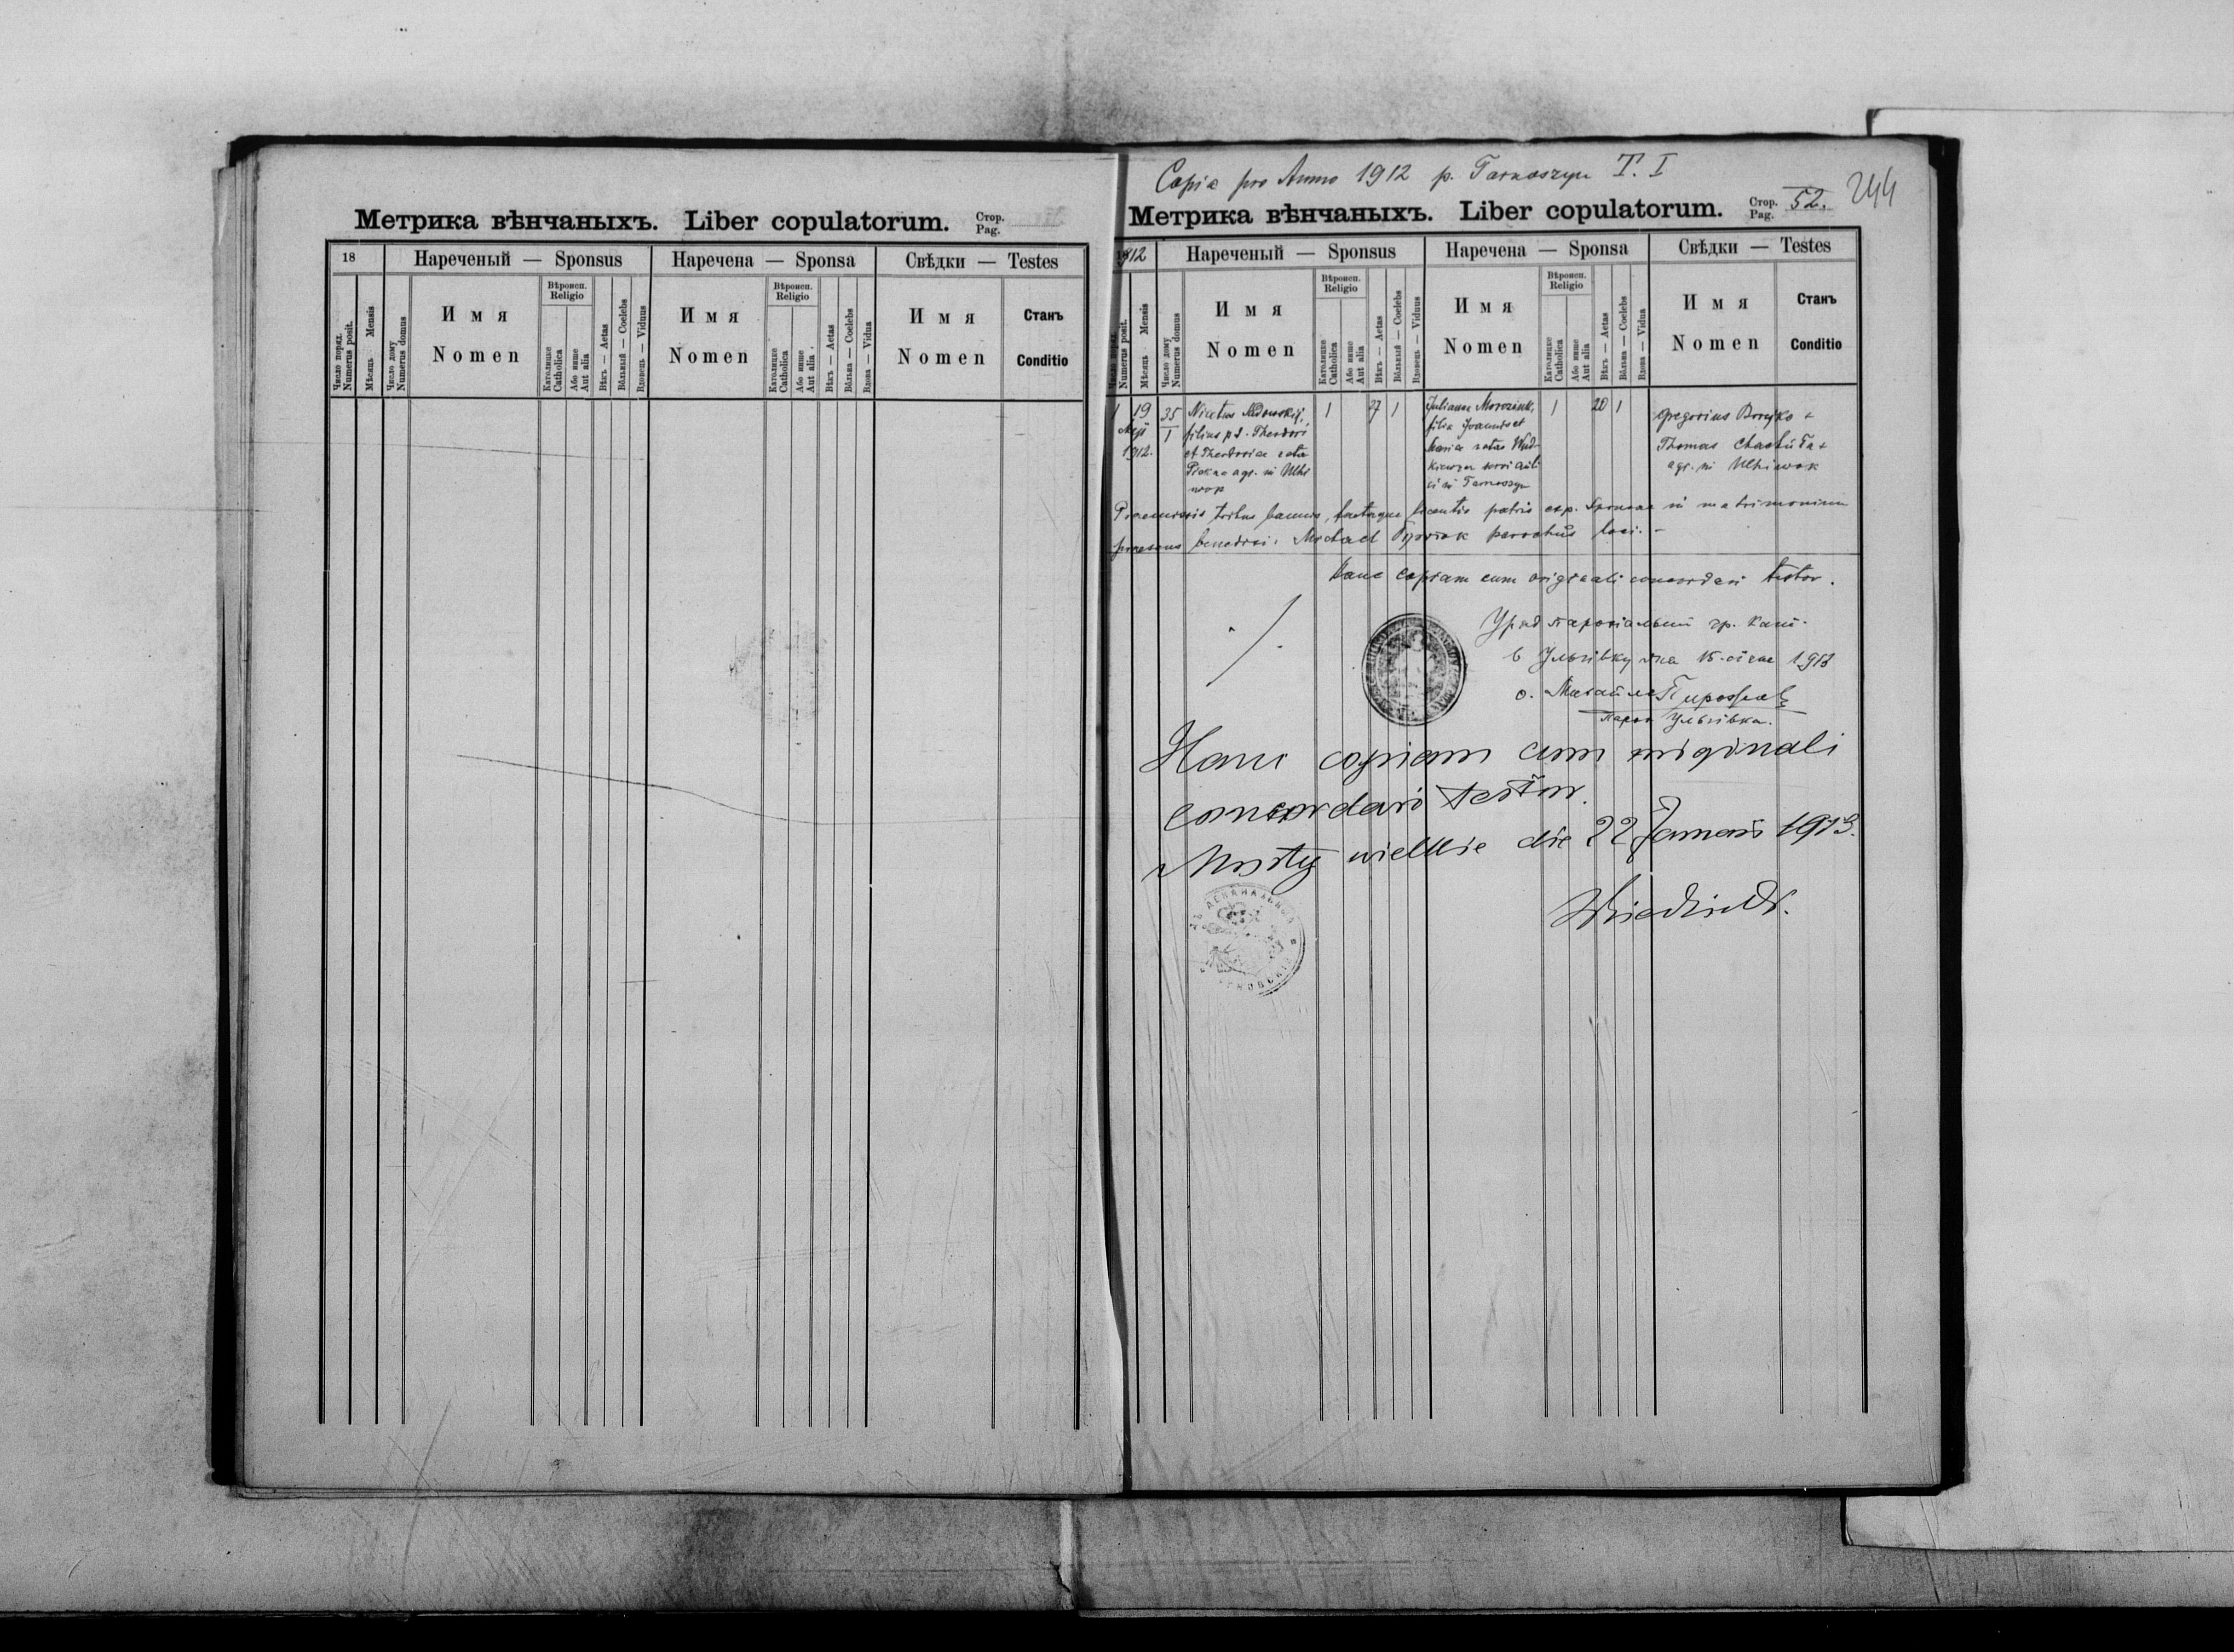 Метрика вѣнчаныхъ. Liber copulatorum. Стор. Pag.
18
Нареченый — Sponsus
Наречена — Sponsa
Свѣдки — Testes
Число поряд. Numerus posit.
Мѣсяць Mensis
Число дому Numerus domus
Имя
Nomen
Вѣроисп. Religio
Католицке Catholica
Або инше Aut alia
Вѣкъ — Aetas
Вôльный — Coelebs
Вдовець — Viduus
Имя
Nomen
Вѣроисп. Religio
Католицке Catholica
Або инше Aut alia
Вѣкъ — Aetas
Вôльна — Coelebs
Вдова — Vidua
Имя
Nomen
Станъ
Conditio
Copia pro Anno 1912 p. Tarnoszyn T. I
244
Метрика вѣнчаныхъ. Liber copulatorum. Стор. Pag. 52.
1912
Нареченый — Sponsus
Наречена — Sponsa
Свѣдки — Testes
Число поряд. Numerus posit.
Мѣсяць Mensis
Число дому Numerus domus
Имя
Nomen
Вѣроисп. Religio
Католицке Catholica
Або инше Aut alia
Вѣкъ — Aetas
Вôльный — Coelebs
Вдовець — Viduus
Имя
Nomen
Вѣроисп. Religio
Католицке Catholica
Або инше Aut alia
Вѣкъ — Aetas
Вôльна — Coelebs
Вдова — Vidua
Имя
Nomen
Станъ
Conditio
1
19
1912.
35
1
Nicetus
filius Theodori
et Theodosiae natae
agr. in Uhri
now
1
27
1
Julianna
filia Joannis et
Maria natae
in Tarnoszyn
1
20
1
Gregorius
Thomas
agr. in
Praemissis tribus bannis, licentia patris sponsae in matrimonium
benedixi. Michael parochus loci. —
Hanc copiam cum originali concordari testor.
Уряд парохіальний гр. кат.
в Ульгівку дна 15. січня 1913
о. Михайло
парох Ульгівка.
Hanc copiam cum originali
concordari testor.
Mosty wielkie die 22 Januarii 1913.
ДЕКАНАЛЬНЫЙ